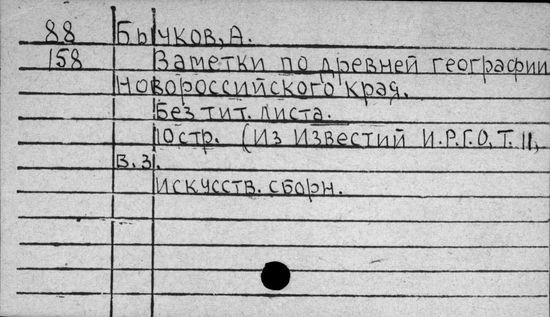 88 Бычков, А.
158 Заметки по древней географии
Новороссийского края.
Без тит. листа.
10 стр. (Из известий И.Р.Г.О, Т. 11,
в. 3).
искусств. сборн.